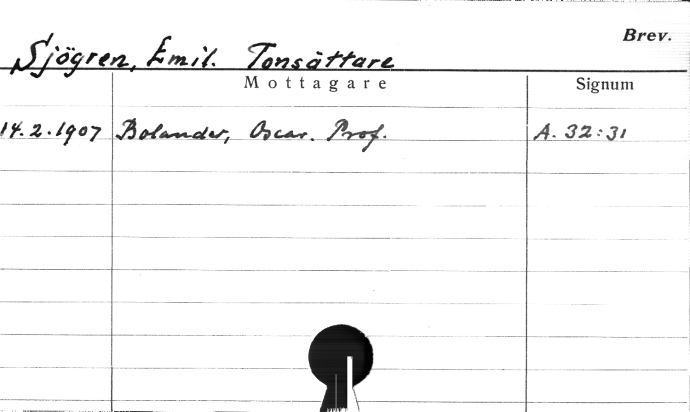 Brev.
Sjögren, Emil. Tonsättare
Mottagare Signum
14.2.1907 Bolander, Oscar. Prof. A. 32:31